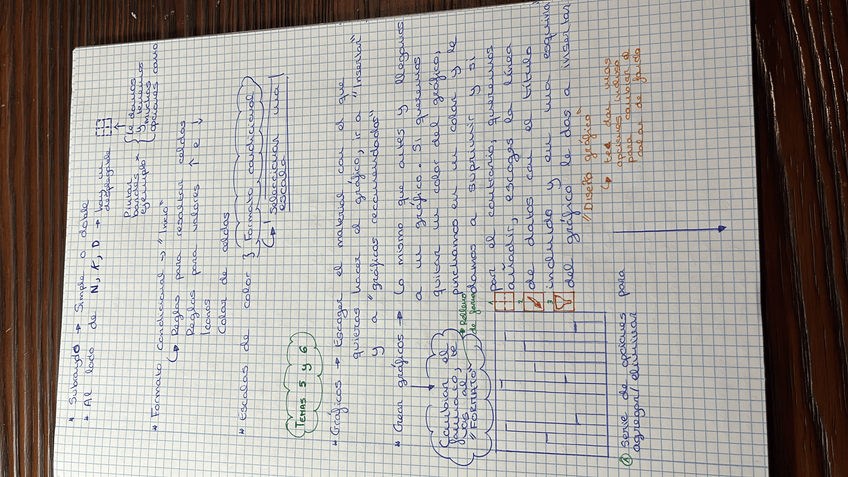 " Subrayado → Simple o doble
" Al lado de N, K, D → hay un desplegable
Pintar bordes, ejemplo
le damos y tenemos muchas opciones como
" Formato Condicional → "Inicio"
↳ Reglas para resaltar celdas
Reglas para valores ↑ e ↓
Iconos
Color de celdas
" Escalas de color } Formato condicional
↳ Seleccionar una escala
TEMAS 5 y 6
" Gráficos → Escoger el material con el que
quieras hacer el gráfico, ir a "Insertar"
y a "gráficos recomendados"
" Crear gráficos → Lo mismo que antes y llegamos
a un gráfico. Si queremos
quitar un color del gráfico,
pinchamos en un color y le
damos a suprimir y si
por el contrario, queremos
añadir, escoges la línea
de datos con el título
incluido y en una esquina
del gráfico le das a insertar
Cambiar el tamaño, te vas al "FORMATO"
→ Relleno de forma
"Diseño gráfico"
↳ te dan unas opciones incluso para cambiar el color de fondo
Serie de opciones para
agregar/eliminar